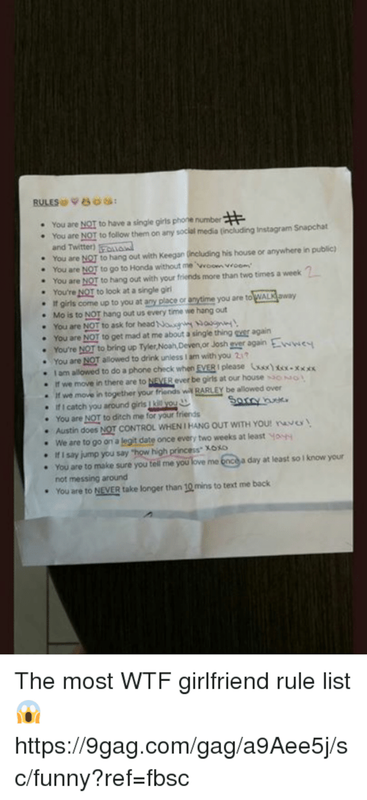 RULES
• You are NOT to have a single girls phone number #
• You are NOT to follow them on any social media (including Instagram Snapchat
and Twitter)
• You are NOT to hang out with Keegan (including his house or anywhere in public)
• You are NOT to go to Honda without me "vroom vroom"
• You are NOT to hang out with your friends more than two times a week 2
• You're NOT to look at a single girl
• If girls come up to you at any place or anytime you are to WALK away
• Mo is to NOT hang out us every time we hang out
• You are NOT to ask for head
• You are NOT to get mad at me about a single thing ever again
• You're NOT to bring up Tyler,Noah,Deven,or Josh ever again
• You are NOT allowed to drink unless I am with you
• I am allowed to do a phone check when EVER I please
• If we move in there are to NEVER ever be girls at our house
• If we move in together your friends will RARLEY be allowed over
• If I catch you around girls I kill you
• You are NOT to ditch me for your friends
• Austin does NOT CONTROL WHEN I HANG OUT WITH YOU! never!
• We are to go on a legit date once every two weeks at least yayy
• If I say jump you say "how high princess" xoxo
• You are to make sure you tell me you love me once a day at least so I know your
not messing around
• You are to NEVER take longer than 10 mins to text me back
The most WTF girlfriend rule list
https://9gag.com/gag/a9Aee5j/s
c/funny?ref=fbsc